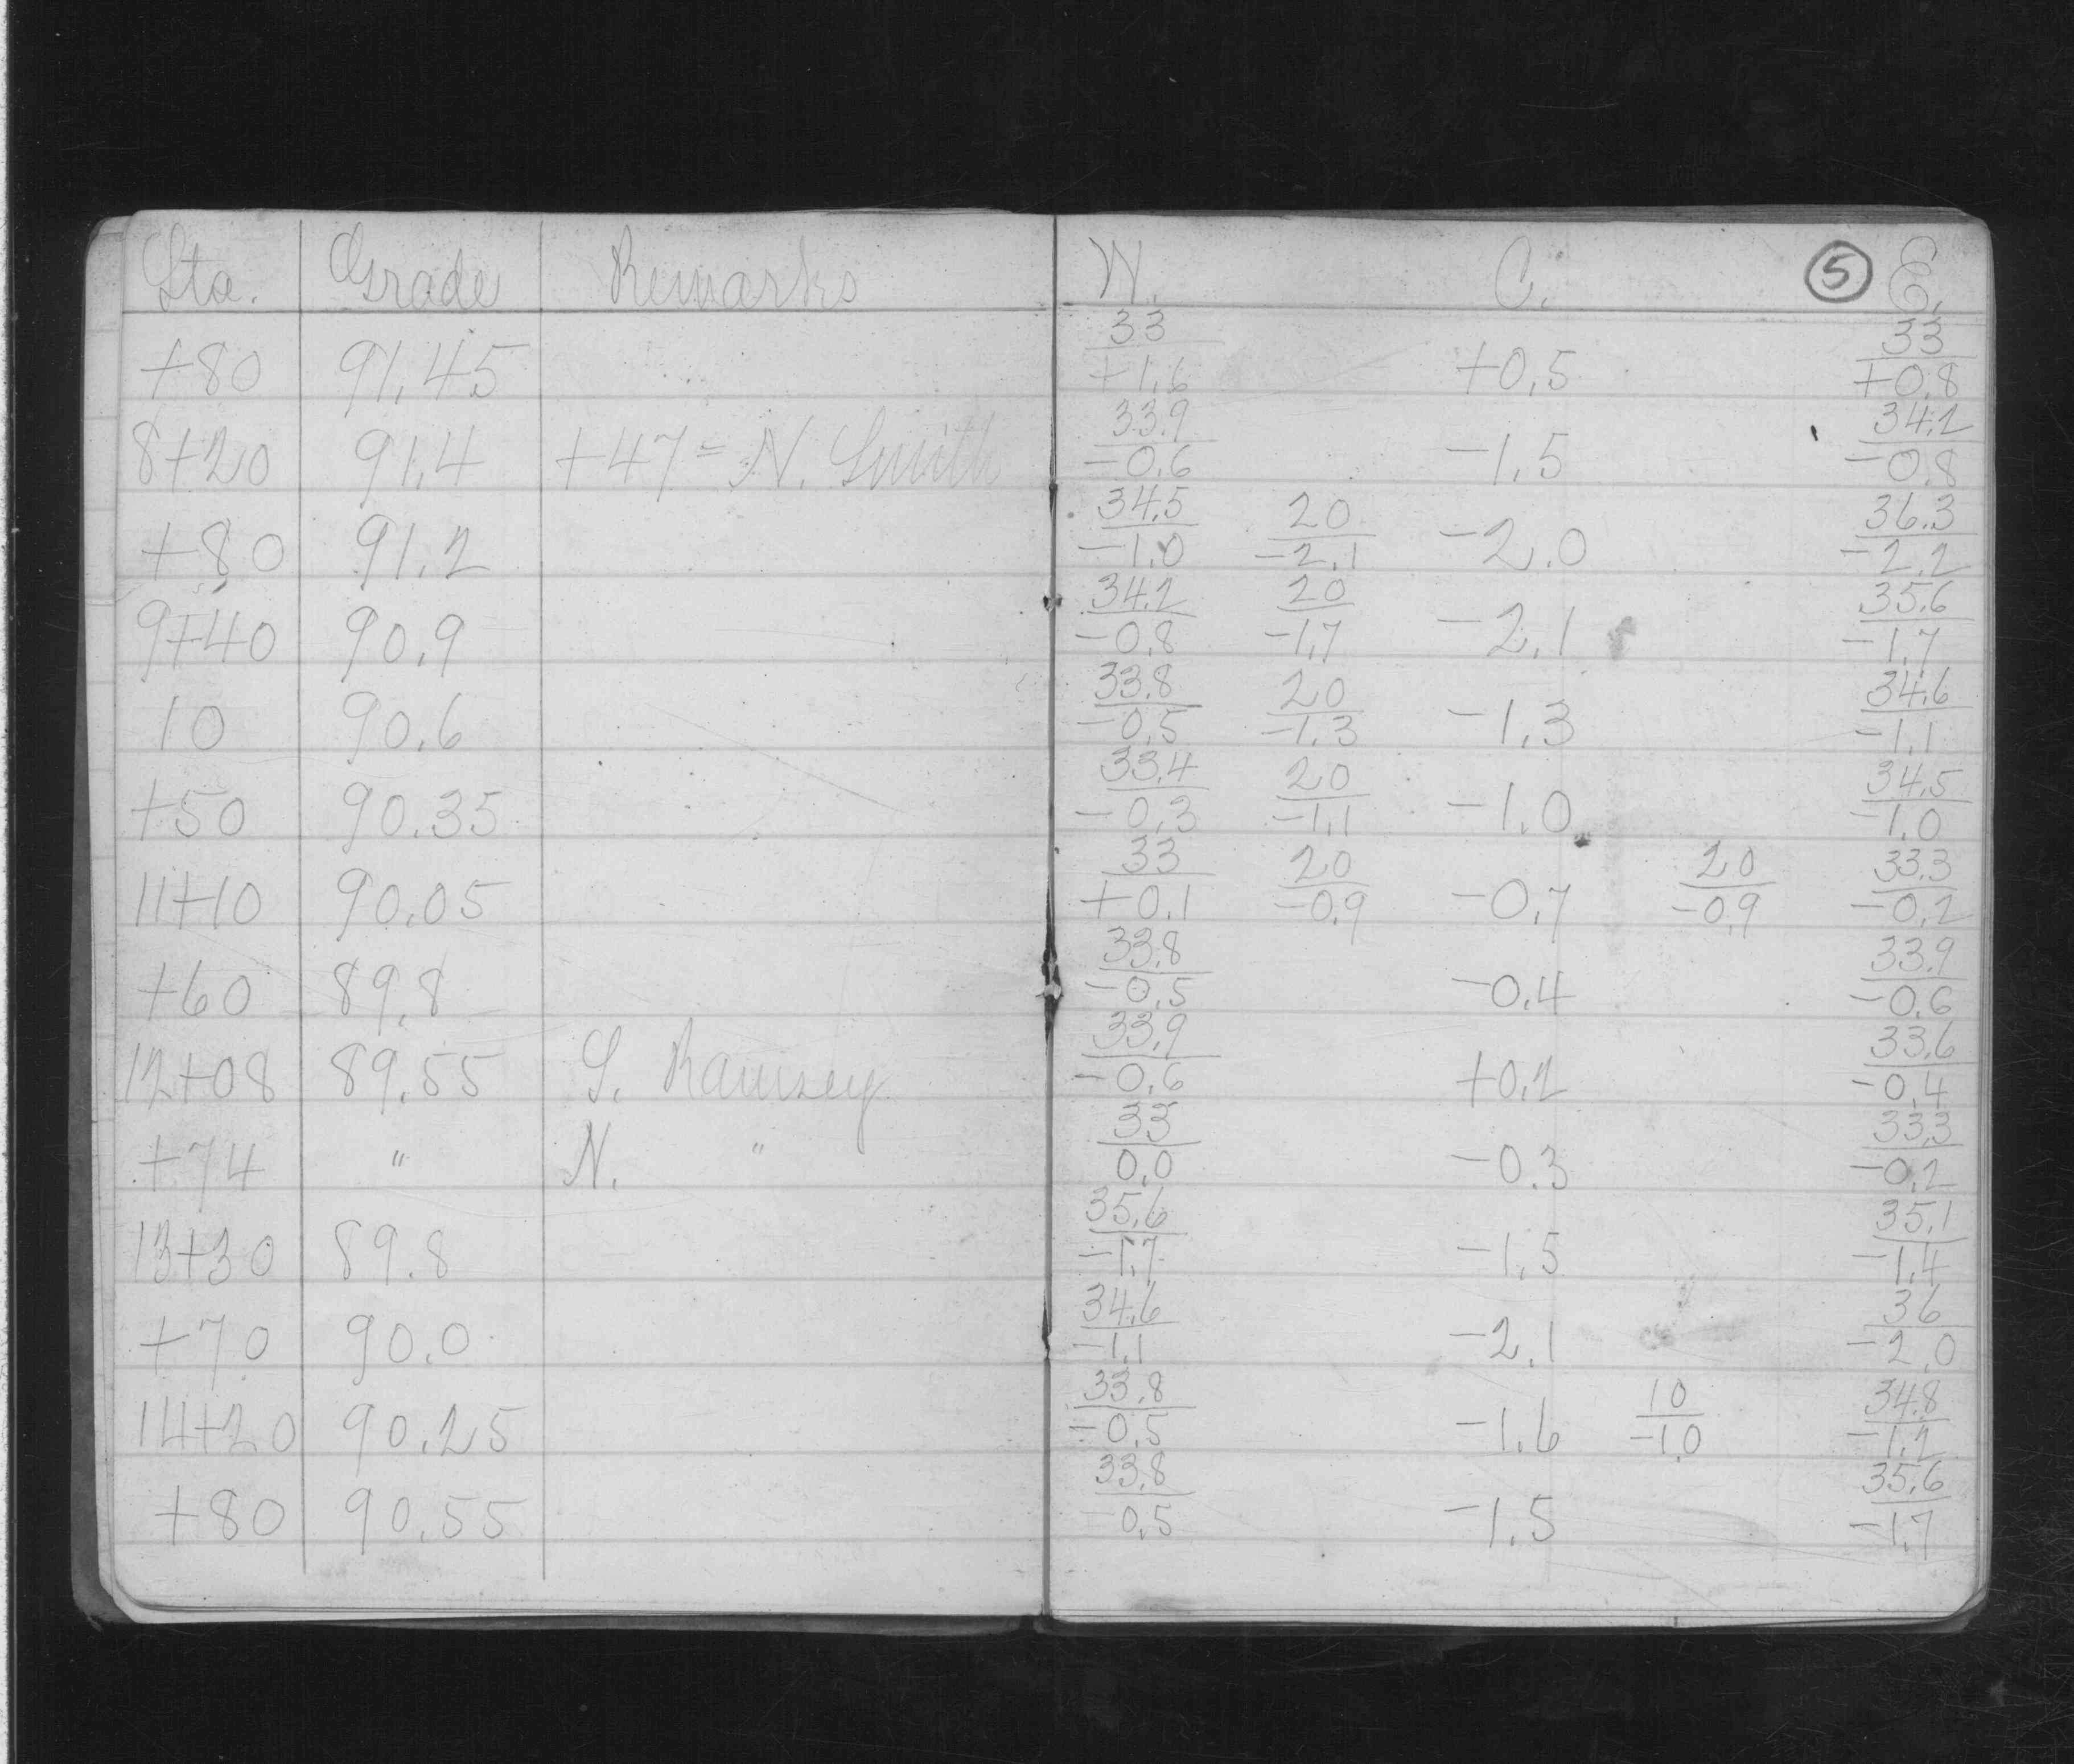 Sta. Grade Remarks W. C. 5 E.
+80 91.45 33/+1.6 +0.5 33/+0.8
8+20 91.4 +47 = N. Smith 33.9/-0.6 -1.5 34.2/-0.8
+80 91.2 34.5/-1.0 20/-2.1 -2.0 36.3/-2.2
9+40 90.9 34.2/-0.8 20/-1.7 -2.1 35.6/-1.7
10 90.6 33.8/-0.5 20/-1.3 -1.3 34.6/-1.1
+50 90.35 33.4/-0.3 20/-1.1 -1.0 34.5/-1.0
11+10 90.05 33/+0.1 20/-0.9 -0.7 20/-0.9 33.3/-0.2
+60 89.8 33.8/-0.5 -0.4 33.9/-0.6
12+08 89.55 S. Ramsey 33.9/-0.6 +0.2 33.6/-0.4
+74 " N. " 33/0.0 -0.3 33.3/-0.2
13+30 89.8 35.6/-1.7 -1.5 35.1/-1.4
+70 90.0 34.6/-1.1 -2.1 36/-2.0
14+20 90.25 33.8/-0.5 -1.6 10/-1.0 34.8/-1.2
+80 90.55 33.8/-0.5 -1.5 35.6/-1.7